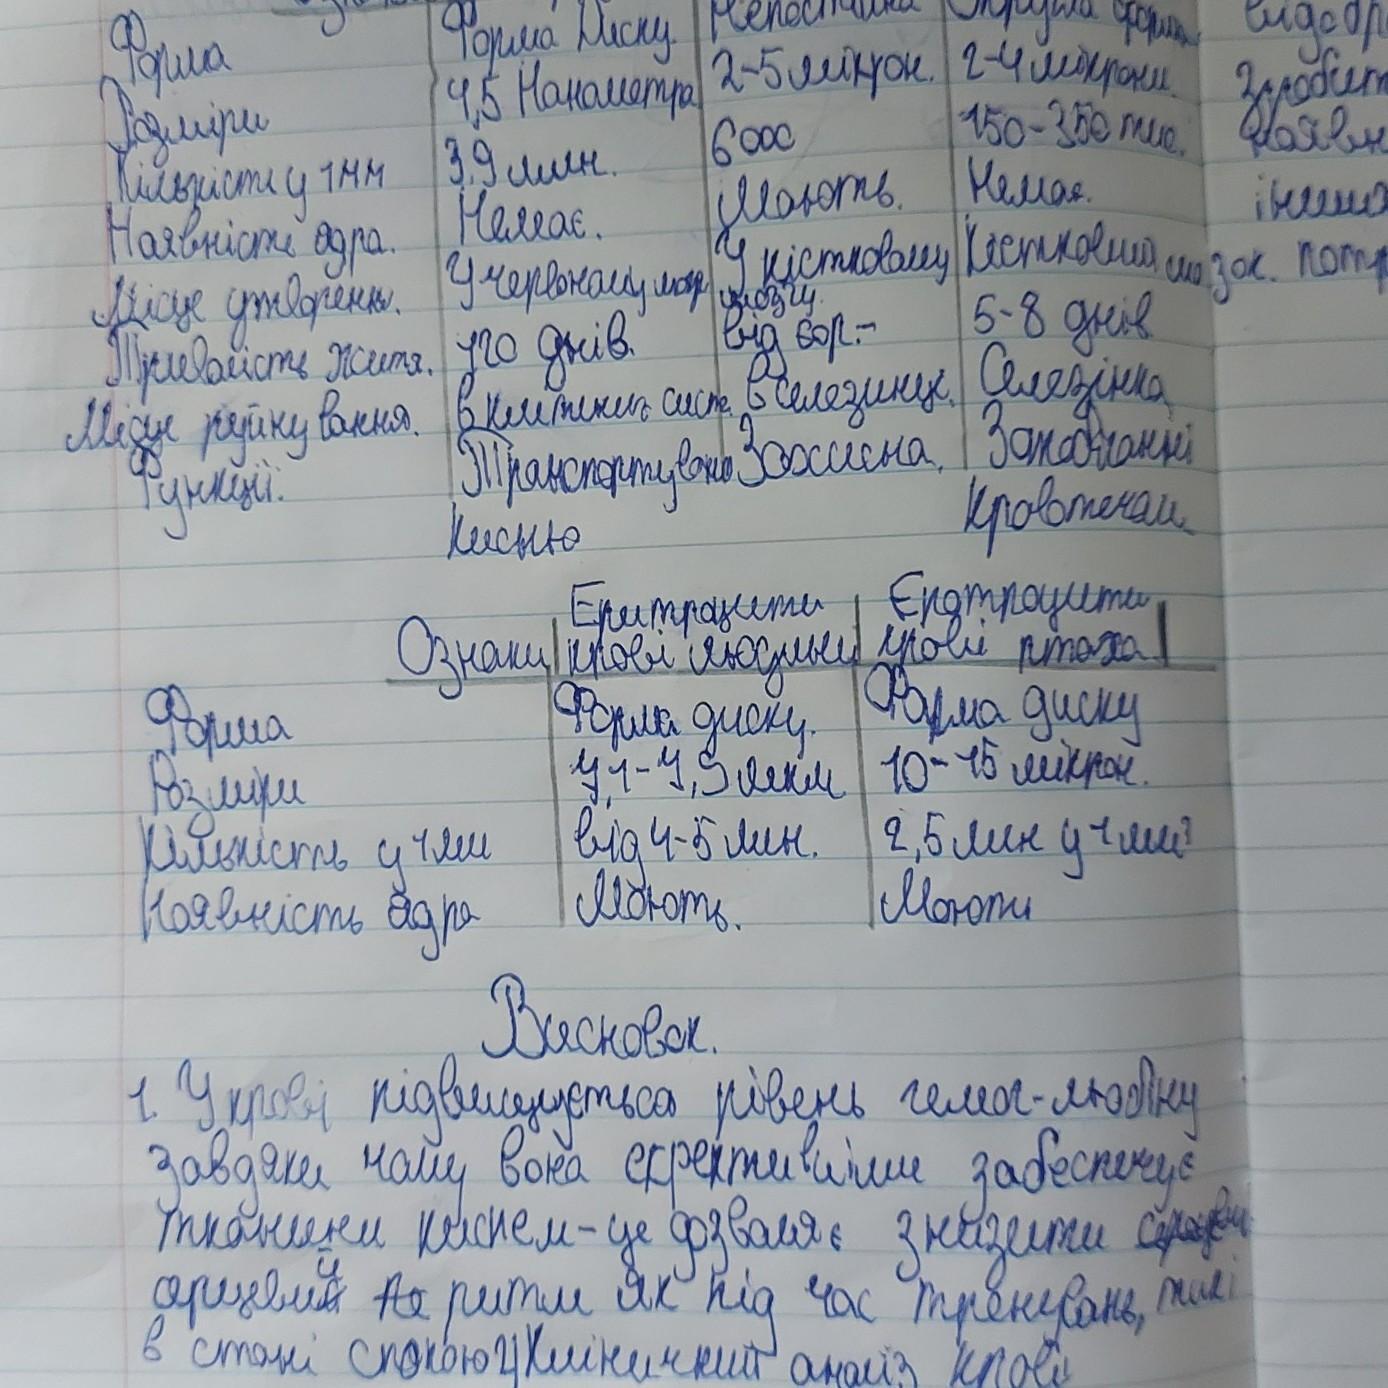 Форма Форма Диску Непостійна Округла форма
Розміри 7,5 Нанометра 2-5 мікрон. 2-4 мікрони. Зробит
Кількісти у 1мм 3,9 млн. 6000 150-350 тис. Наявн
Наявність ядра. Немає. Мають. Немає. інша
Місце утворення. У червоному У кістковому Кістковий мозок. потр
мозгу.
Тривалість життя. 120 днів. від 5-8 днів
Місце руйнування. в клітиних систе. в селезинце. Селезінка
Функції. Транспортувана Захисна. Запобіганні
кисню кровотечам
Еритрацити Ератроцити
Ознаки крові людини крові птаха
Форма Форма диску. Форма диску
Розміри 7,1-7,9 мкм 10-15 мікрон.
Кількість у 1мм від 4-5 млн. 2,5 млн у 1мм³
Наявність ядра Мають. Мають
Висновок.
1. У крові підвищується рівень гемог-любіну
завдяки чому вона ефективніши забеспечує
тканини киснем-це дозваляє знизити
ритм як під час тренувань, так і
в стані спокою Клінічний аналіз крові